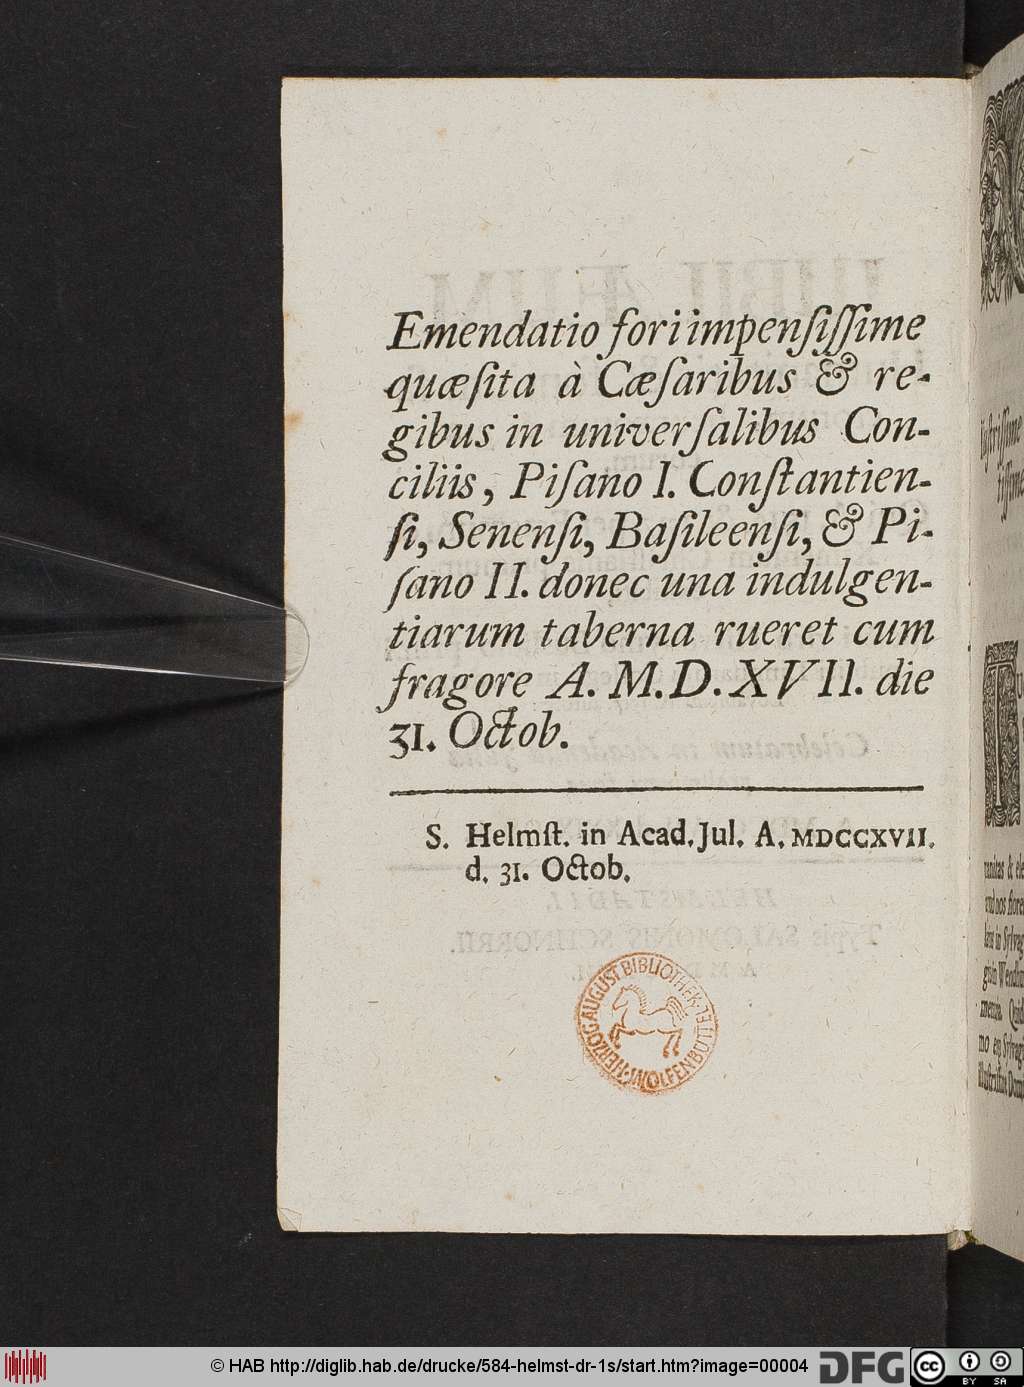 Emendatio fori impensiſſime
quæſita à Cæſaribus & re-
gibus in univerſalibus Con-
ciliis, Piſano I. Conſtantien-
ſi, Senenſi, Baſileenſi, & Pi-
ſano II. donec una indulgen-
tiarum taberna rueret cum
fragore A. M. D. XVII. die
31. Octob.
S. Helmſt. in Acad. Jul. A. MDCCXVII.
d. 31. Octob.
HERZOG AUGUST BIBLIOTHEK · WOLFENBÜTTEL ·
© HAB http://diglib.hab.de/drucke/584-helmst-dr-1s/start.htm?image=00004
DFG
cc
BY SA